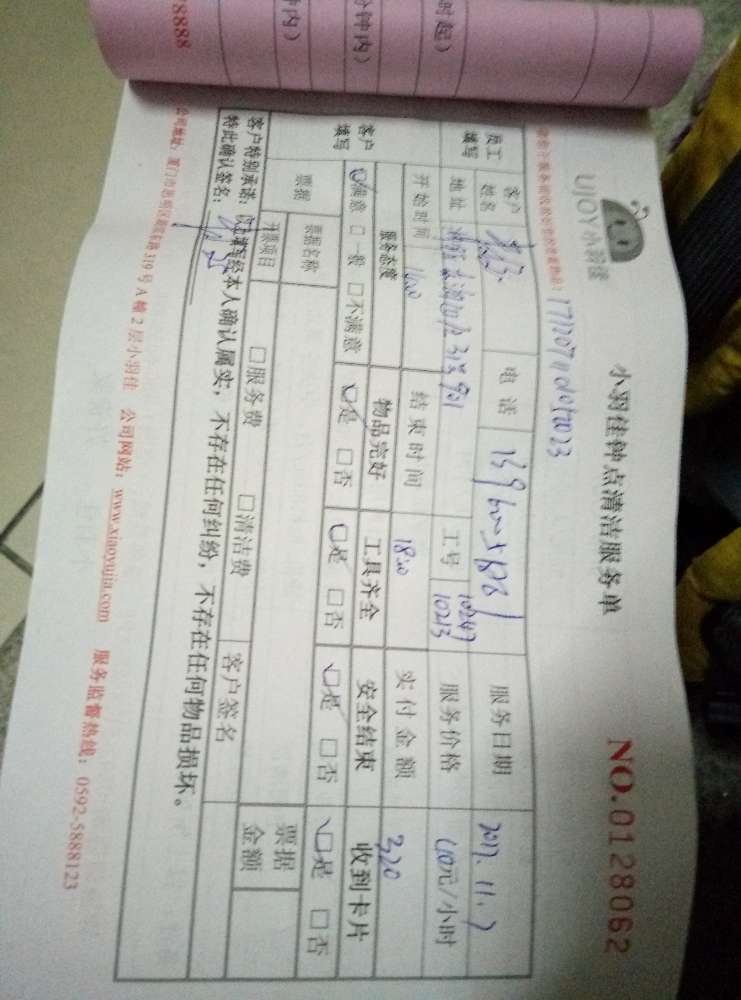 时起)
分钟内)
钟内)
78888
UJOY 小羽佳
小羽佳钟点清洁服务单
NO.0128062
员工填写
客户姓名
电话
服务日期 2017.11.7
地址
工号 10247 10213
服务价格 40元/小时
开始时间 14:00
结束时间 18:00
实付金额 320
客户填写
服务态度 物品完好 工具齐全 安全结束 收到卡片
□满意 □一般 □不满意 □是 □否 □是 □否 □是 □否 □是 □否
票据
票据名称 □服务费 □清洁费
票据金额
开票项目
客户签名
客户特别承诺:以上内容经本人确认属实,不存在任何纠纷,不存在任何物品损坏。
特此确认签名:
公司地址:厦门市思明区 319号A幢2层小羽佳 公司网站:www.xiaoyujia.com 服务监督热线:0592-5888123